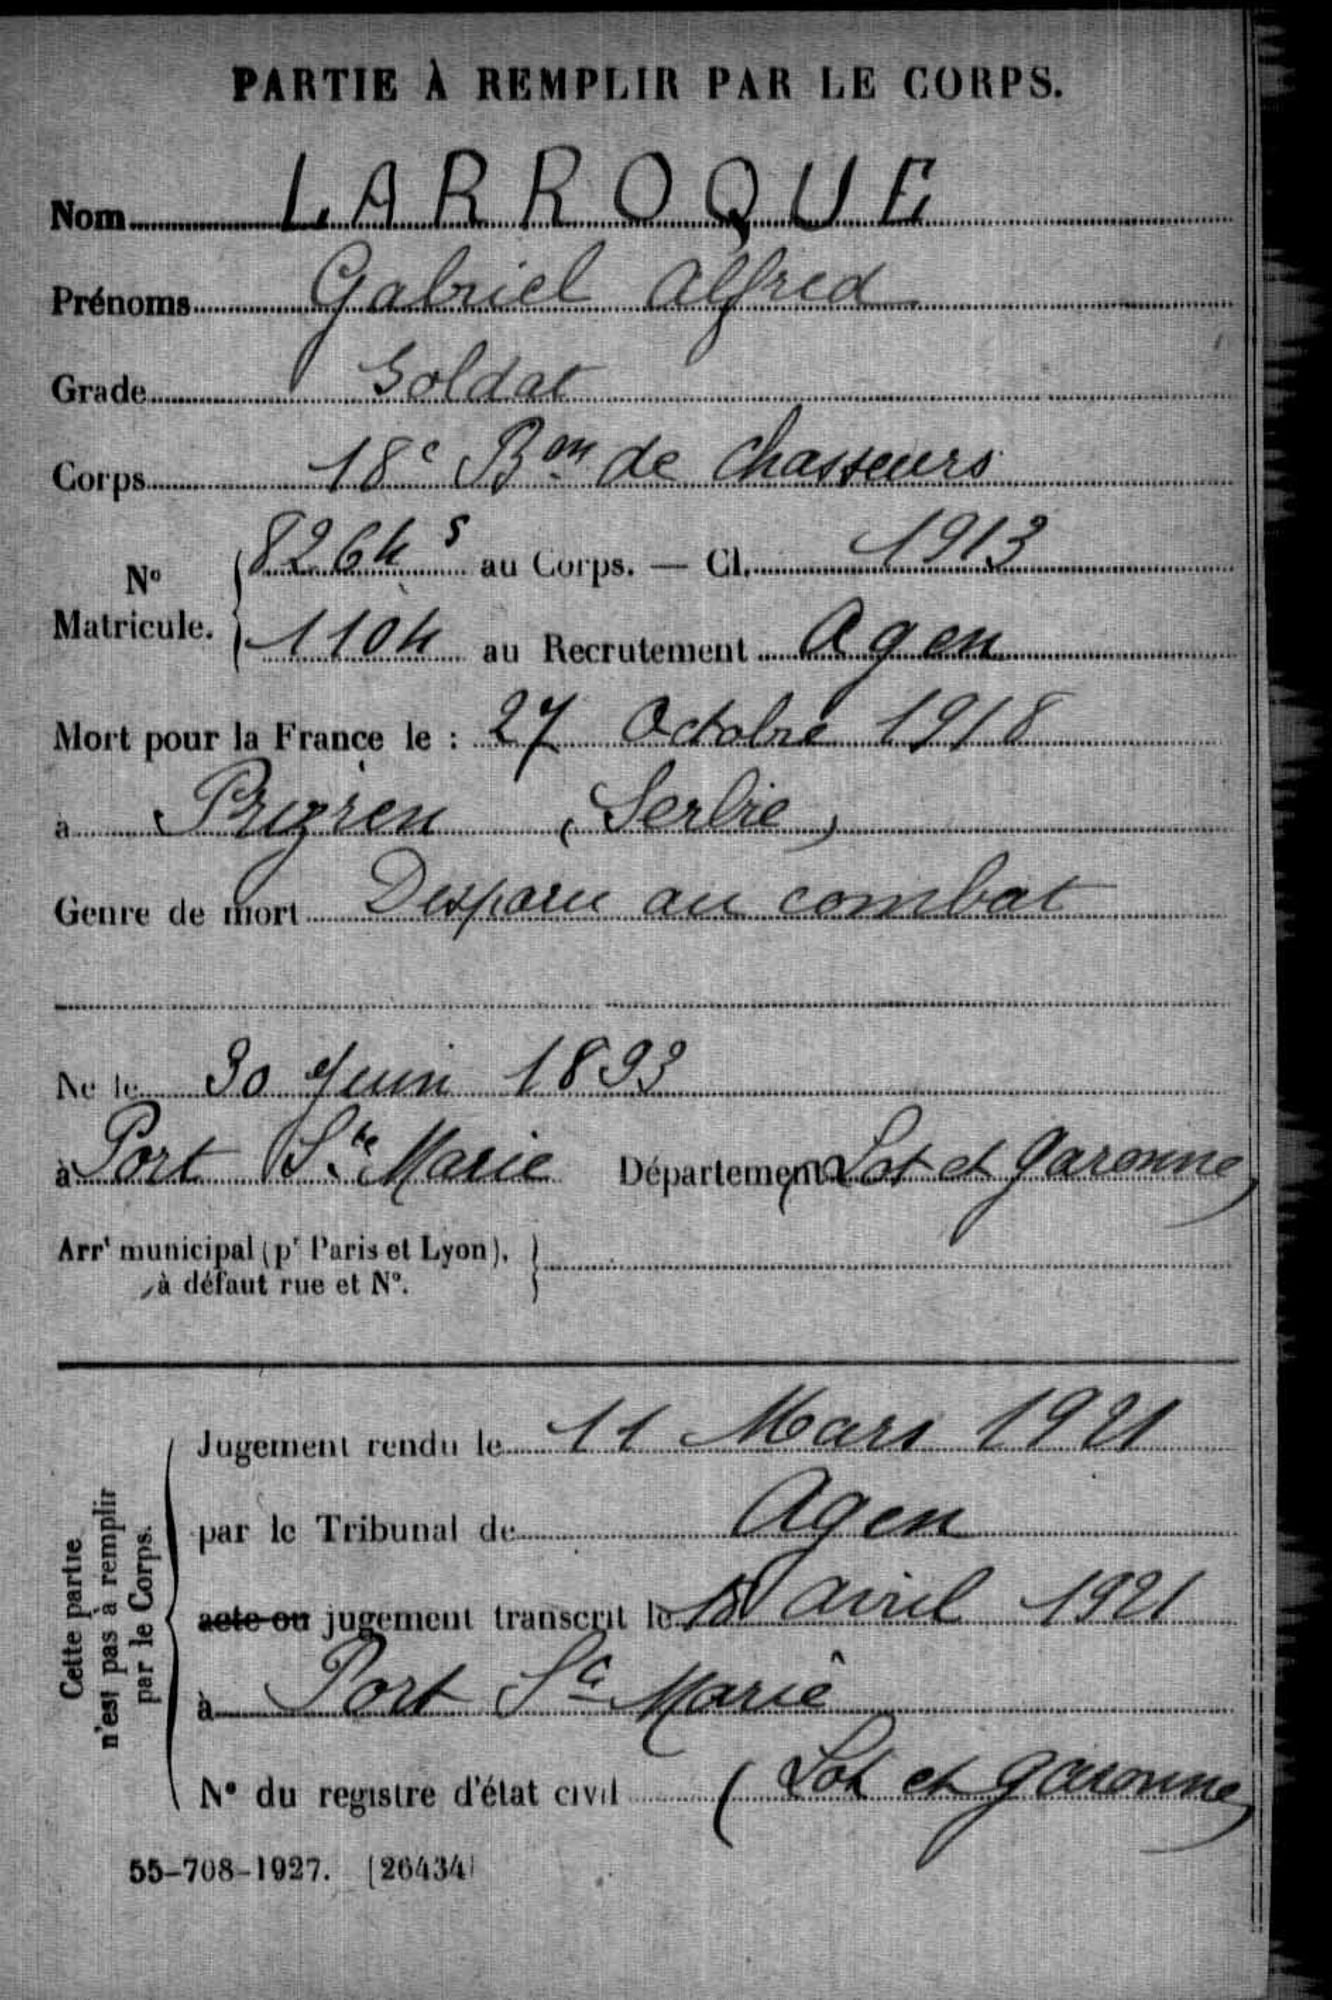 PARTIE À REMPLIR PAR LE CORPS.
Nom LARROQUE
Prénoms Gabriel Alfred
Grade Soldat
Corps 18e Bon de Chasseurs
8264 s au Corps. — Cl. 1913
No Matricule.
1104 au Recrutement Agen
Mort pour la France le : 27 Octobre 1918
à Prizren (Serbie)
Genre de mort Disparu au combat
Né le 30 Juin 1893
à Port Ste Marie Département (Lot et Garonne)
Arrt municipal (pr Paris et Lyon),
à défaut rue et No.
Cette partie
n'est pas à remplir
par le Corps.
Jugement rendu le 11 Mars 1921
par le Tribunal de Agen
acte ou jugement transcrit le avril 1921
à Port Se Marie
No du registre d'état civil (Lot et Garonne)
55-708-1927. [26434]